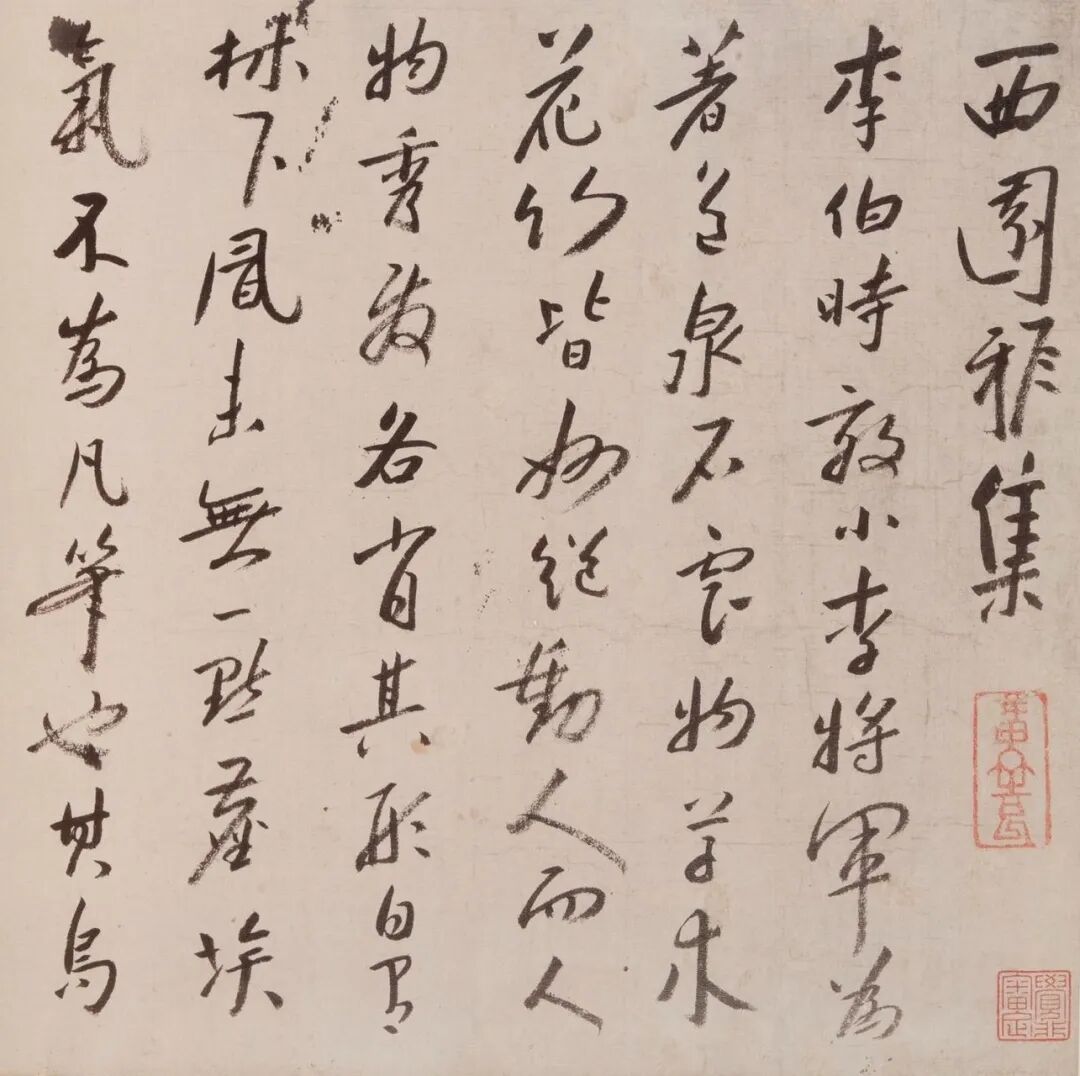 西園雅集
李伯時效小李將軍為
著色泉石雲物草木
花竹皆妙絕動人而人
物秀發各肖其形自有
林下風味無一點塵埃
氣不為凡筆也其烏